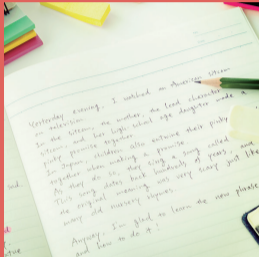 Yesterday evening, I watched an American sitcom
on television.
In the sitcom, the mother, the lead character
sitcom, and her high school age daughter made a
pinky promise together.
In Japan, children also entwine their pinky
together when making a promise.
As they do so, they sing a song called
This song dates back hundreds of years, and
the original meaning was very scary just like
many old nursery rhymes.
Anyway, I'm glad to learn the new phrase
and how to do it!